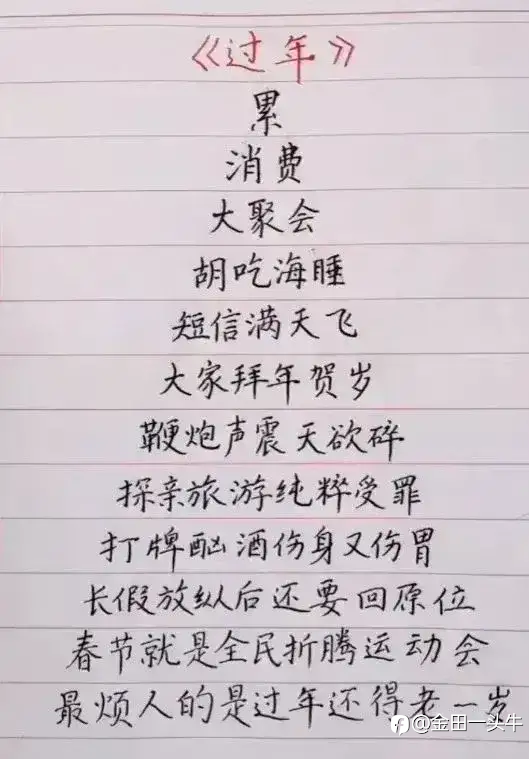 《过年》
累
消费
大聚会
胡吃海睡
短信满天飞
大家拜年贺岁
鞭炮声震天欲碎
探亲旅游纯粹受罪
打牌酗酒伤身又伤胃
长假放纵后还要回原位
春节就是全民折腾运动会
最烦人的是过年还得老一岁
@金田一头牛